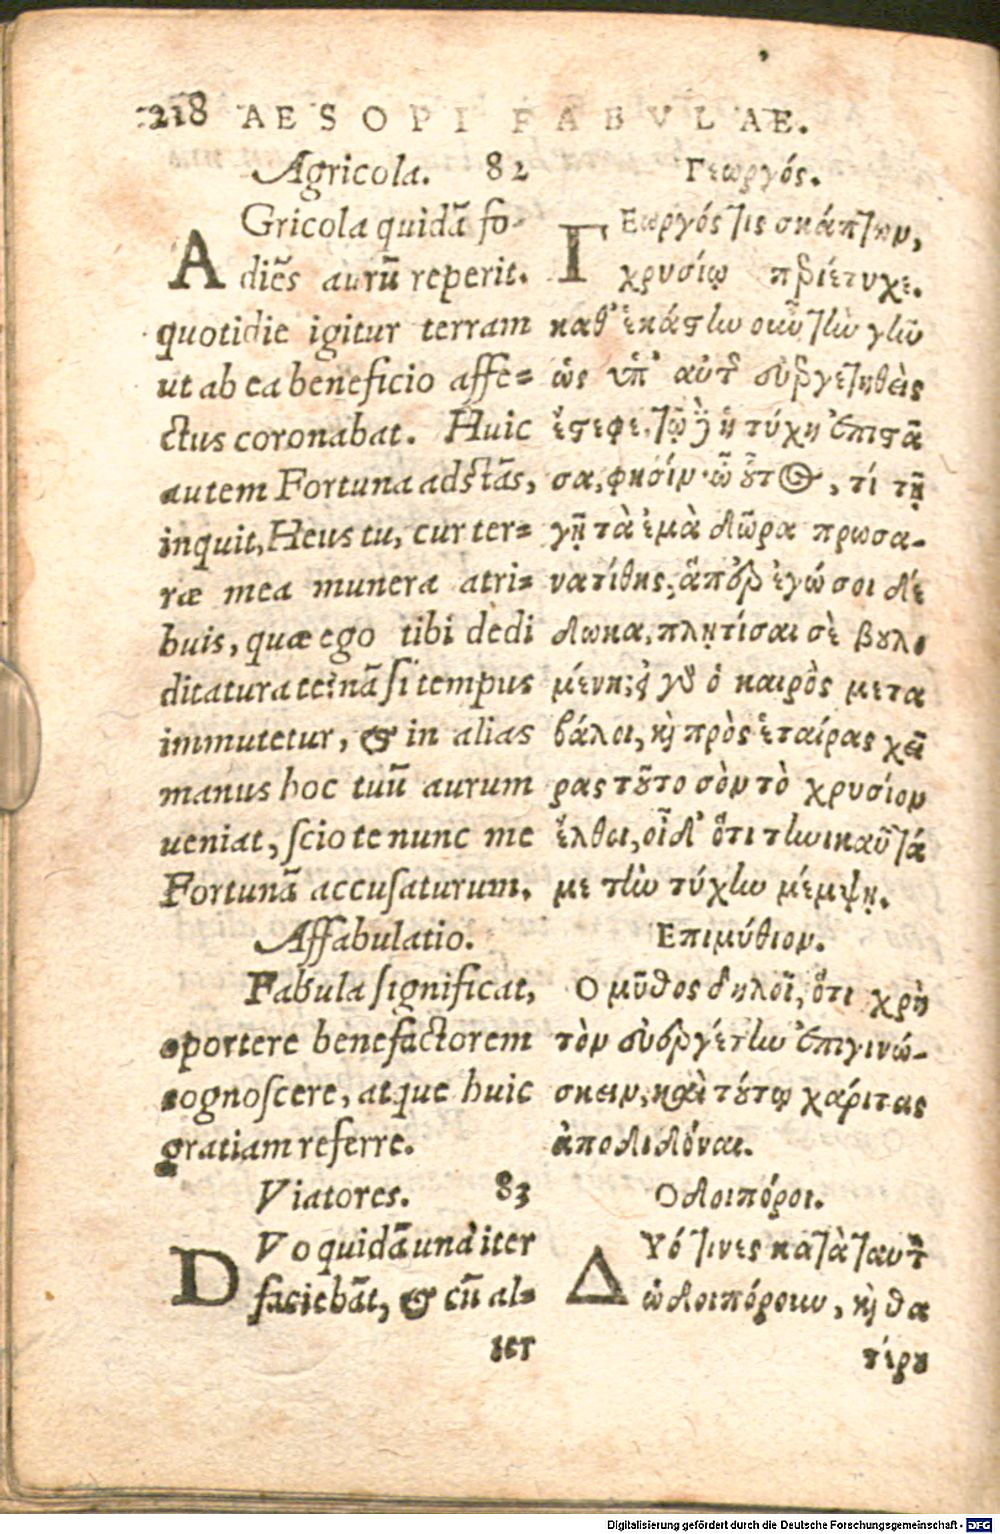 218 AESOPI FABVLAE.
Agricola. 82
AGricola quidā fo-
diēs aurū reperit.
quotidie igitur terram
ut ab ea beneficio affe=
ctus coronabat. Huic
autem Fortuna adstās,
inquit, Heus tu, cur ter=
ræ mea munera atri=
buis, quæ ego tibi dedi
ditatura te? nā si tempus
immutetur, & in alias
manus hoc tuū aurum
ueniat, scio te nunc me
Fortunā accusaturum.
Affabulatio.
Fabula significat,
oportere benefactorem
cognoscere, atque huic
gratiam referre.
Viatores. 83
DVo quidā unà iter
faciebāt, & cū al=
ter
Γεωργός.
ΓΕωργός τις σκάπτων,
χρυσίῳ περιέτυχε.
καθ' ἑκάστην οὖν τὴν γῆν
ὡς ὑπ' αὐτῆς εὐεργετηθεὶς
ἔστεφε. τῷ δὲ ἡ τύχη ἐπιστᾶ
σα, φησίν· ὦ οὗτος, τί τῇ
γῇ τὰ ἐμὰ δῶρα πρωσα-
νατίθης, ἅπερ ἐγώ σοι δέ
δωκα, πλητίσαι σὲ βουλο
μένη; εἰ γὰρ ὁ καιρὸς μετα
βάλοι, καὶ πρὸς ἑταίρας χεῖ
ρας τοῦτο σὸν τὸ χρυσίον
ἔλθοι, οἶδ' ὅτι τηνικαῦτά
με τὴν τύχην μέμψῃ.
Επιμύθιον.
Ο μῦθος δηλοῖ, ὅτι χρὴ
τὸν εὐεργέτην ἐπιγινώ-
σκειν, καὶ τούτῳ χάριτας
ἀποδιδόναι.
Οδοιπόροι.
ΔΥό τινες κατὰ ταυτὸν
ὡδοιπόρουν, καὶ θα
τέρου
Digitalisierung gefördert durch die Deutsche Forschungsgemeinschaft - DFG